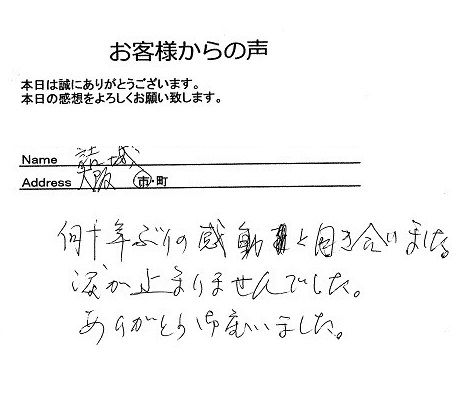 お客様からの声
本日は誠にありがとうございます。
本日の感想をよろしくお願い致します。
Name 結城
Address 大阪 市・町
何十年ぶりの感動と向き合いました
涙が止まりませんでした。
ありがとう御座いました。